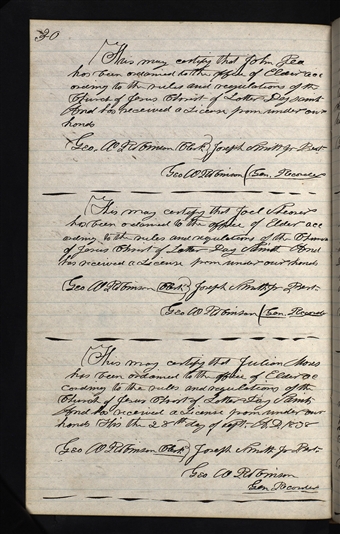 This may certify that John
has been ordained to the office of Elder acc
ording to the rules and regulations of the
Church of Jesus Christ of Latter Day Saints
And has received a License from under our
hands
Geo. W Robinson Clerk Joseph Smith Jr Prest.
Geo W Robinson Gen. Recorder
This may certify that Joel
has been ordained to the office of Elder acc
ording to the rules and regulations of the Church
of Jesus Christ of Latter Day Saints And
has received a License from under our hands
Geo W Robinson Clerk Joseph Smith Jr Prest.
Geo W Robinson Gen. Recorder
This may certify that Julian Moses
has been ordained to the office of Elder ac
cording to the rules and regulations of the
Church of Jesus Christ of Latter Day Saints
And has received a License from under our
hands this the 28th day of Sept. A.D. 1838
Geo W Robinson Clerk Joseph Smith Jr Prest.
Geo W Robinson
Gen. Recorder